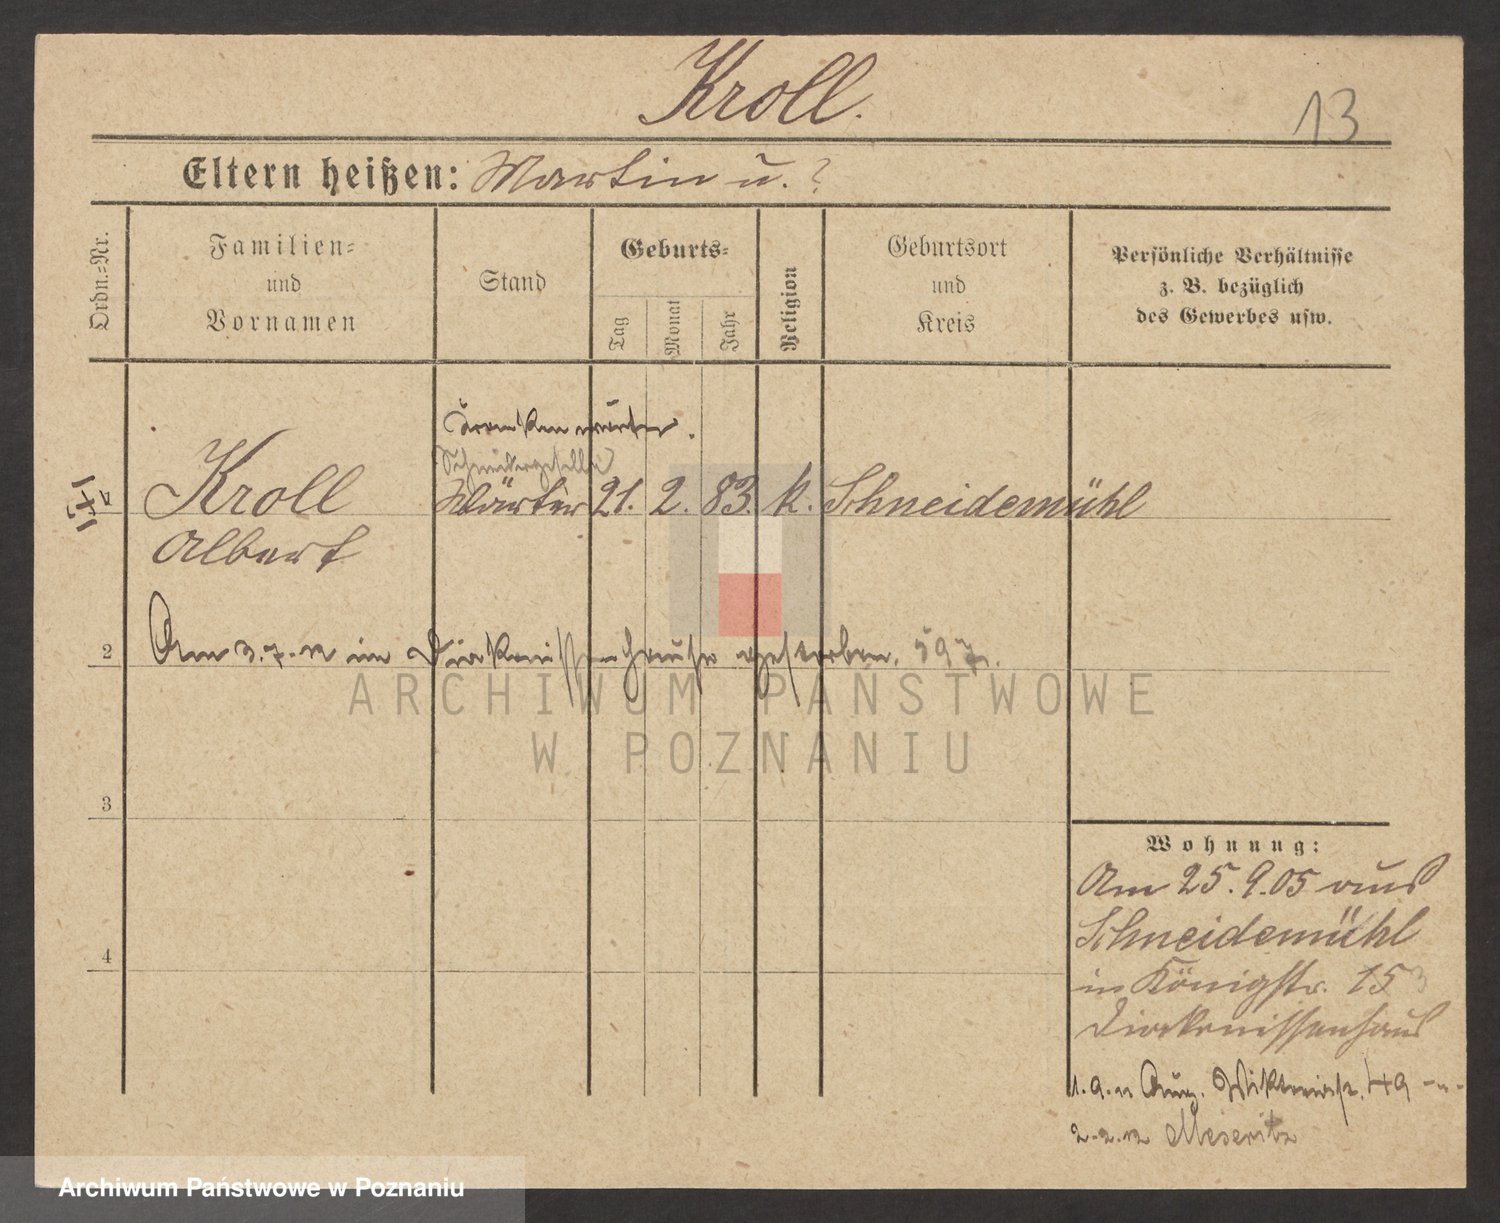 Kroll.
13
Eltern heißen: Martin u. ?
Ordn.=Nr.
Familien=
und
Vornamen
Stand
Geburts=
Tag
Monat
Jahr
Religion
Geburtsort
und
Kreis
Persönliche Verhältnisse
z. B. bezüglich
des Gewerbes usw.
Krankenwärter.
Kroll Wärter 21. 2. 83. k. Schneidemühl
Albert
2
Am 3.7.12 im Diakonissenhause gestorben.
ARCHIWUM PAŃSTWOWE
W POZNANIU
3
4
Wohnung:
Am 25.9.05 aus
Schneidemühl
in Königstr. 15
Diakonissenhaus
49
2.2.12 Meseritz
Archiwum Państwowe w Poznaniu